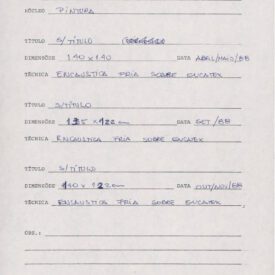 NÚCLEO PINTURA
TÍTULO S/TÍTULO
DIMENSÕES 1.40 x 1.40 DATA ABRIL/MAIO/88
TÉCNICA ENCAUSTICA FRIA SOBRE EUCATEX
TÍTULO S/TÍTULO
DIMENSÕES 125 x 122 cm DATA SET/88
TÉCNICA ENCAUSTICA FRIA SOBRE EUCATEX
TÍTULO S/TÍTULO
DIMENSÕES 140 x 122 cm DATA OUT/NOV/88
TÉCNICA ENCAUSTICA FRIA SOBRE EUCATEX
OBS.: